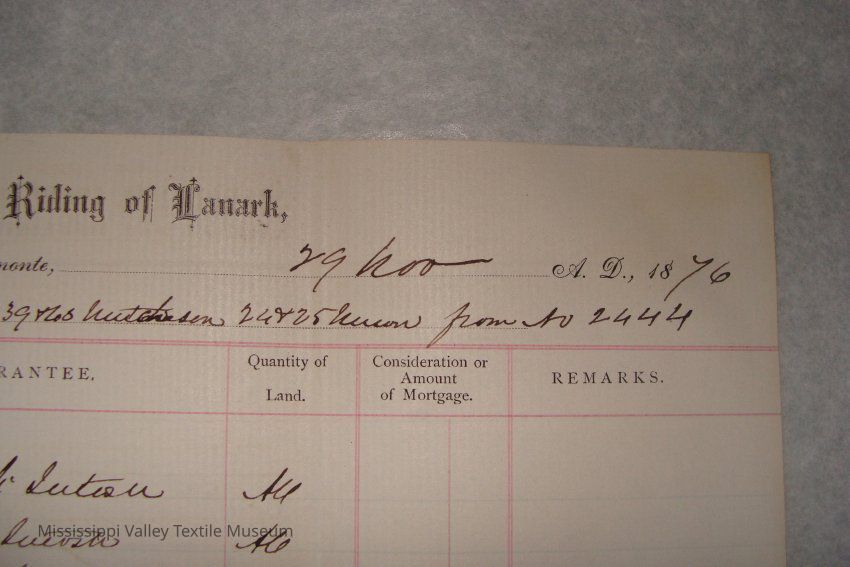 Riding of Lanark,
monte, 29 Nov A. D., 1876
39 & 68 Hutcheson 24 & 25 from No 2444
RANTEE.
Quantity of
Land.
Consideration or
Amount
of Mortgage.
REMARKS.
Intosh All
Intosh All
Mississippi Valley Textile Museum